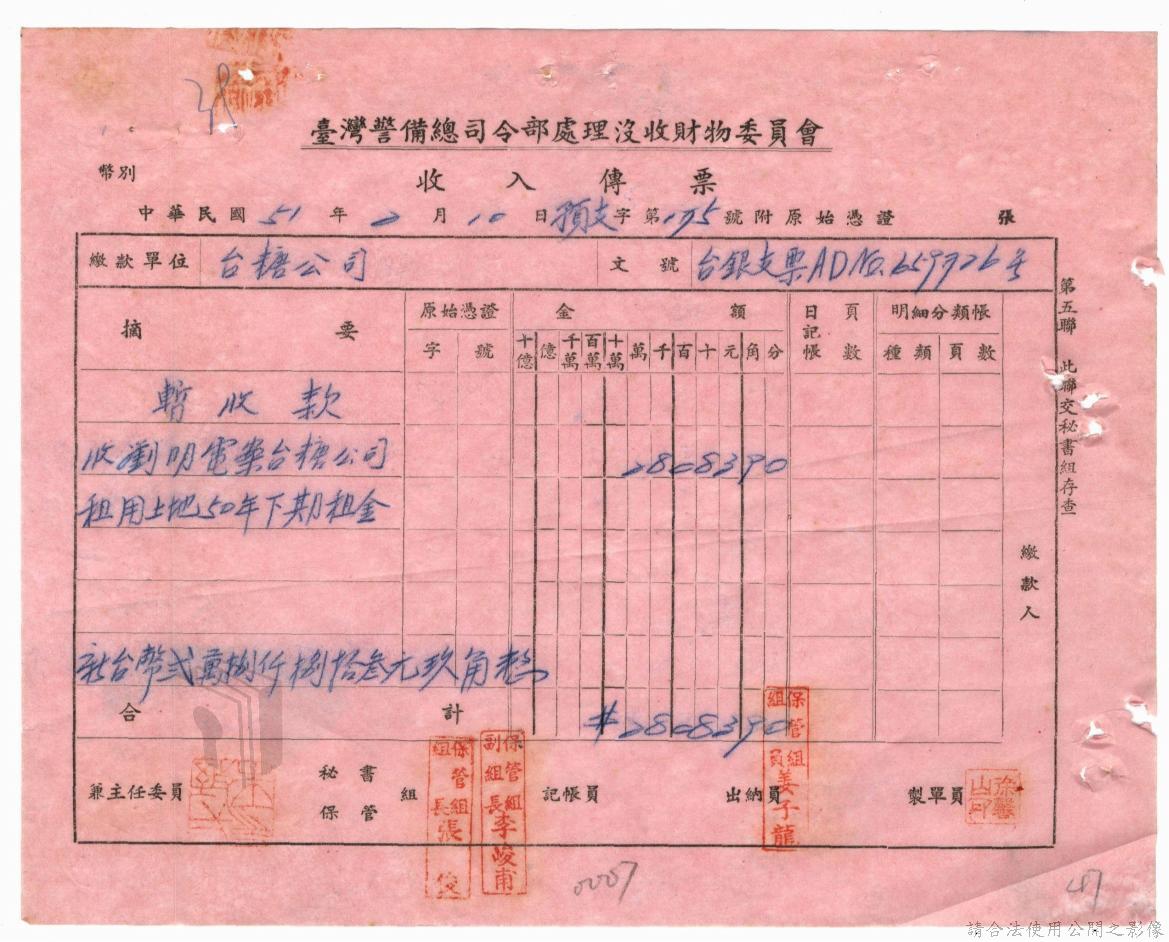 臺灣警備總司令部處理沒收財物委員會
幣別
收入傳票
中華民國 51 年 2 月 10 日 預支 字第 175 號附原始憑證 張
繳款單位 台糖公司 文號 台銀支票AD No.659726號
摘要 原始憑證 金額 日記帳 頁數 明細分類帳
字 號 十億 億 千萬 百萬 十萬 萬 千 百 十 元 角 分 種類 頁數
暫收款
收劉明電案台糖公司 2808390
租用土地50年下期租金
新台幣弍萬捌仟捌拾叁元玖角整
合計 #2808390
兼主任委員 秘書 保管 組 記帳員 出納員 製單員
保管組組長張俊
保管組副組長李峻甫
保管組組員姜子龍
繳款人
第五聯 此聯交秘書組存查
0007
487
請合法使用公開之影像